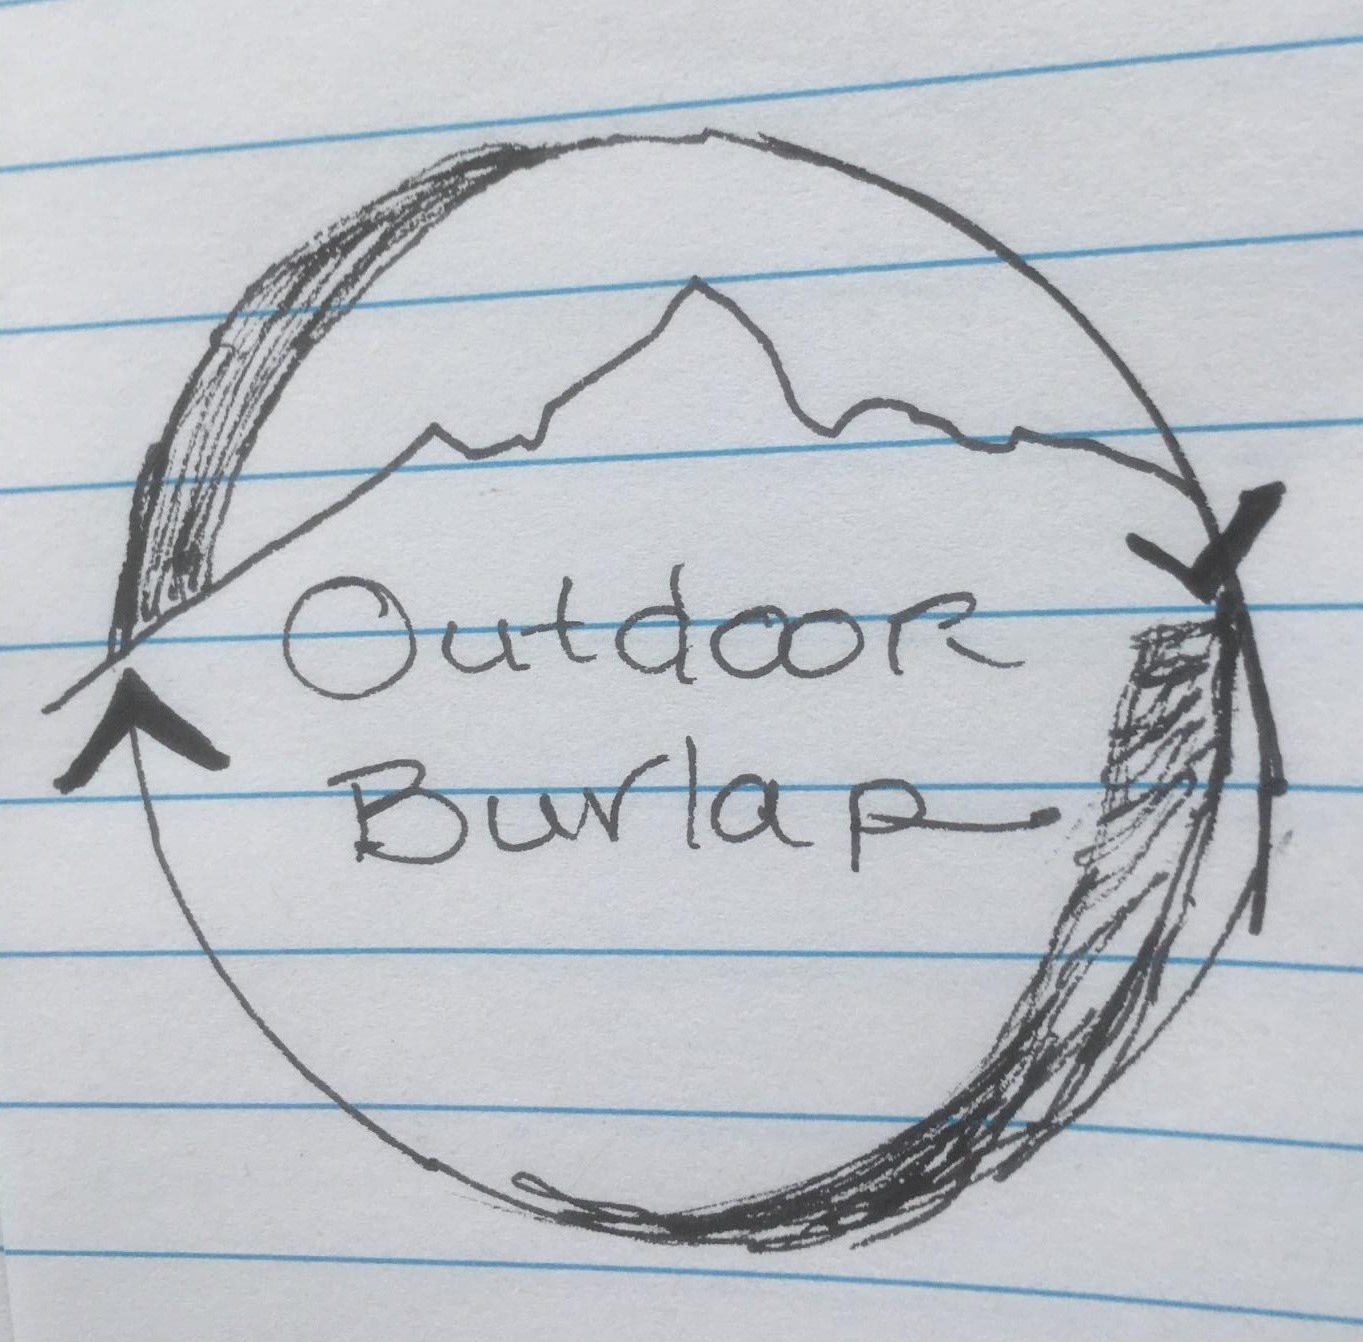 Outdoor
Burlap